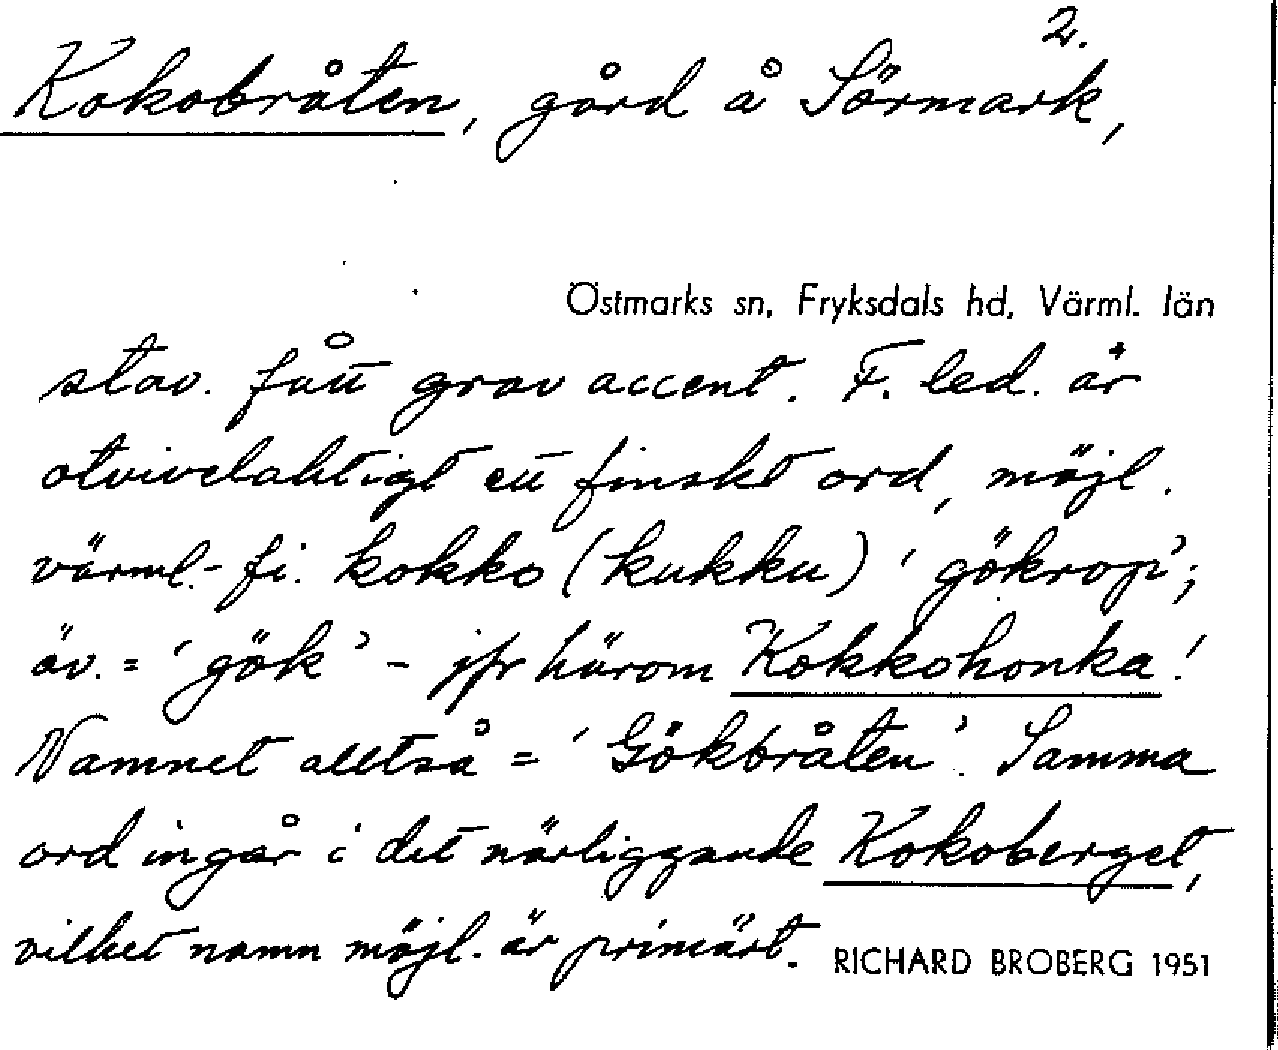 2.
Kokobråten, gård å Sörmark,
Östmarks sn, Fryksdals hd, Värml. län
stav. fått grav accent. F. led. är
otvivelaktigt ett finskt ord, möjl.
värml.-fi. kokko (kukku) 'gökrop';
äv. = 'gök' - jfr härom Kokkohonka!
Namnet alltså = 'Gökbråten'. Samma
ord ingår i det närliggande Kokoberget,
vilket namn möjl. är primärt.
RICHARD BROBERG 1951